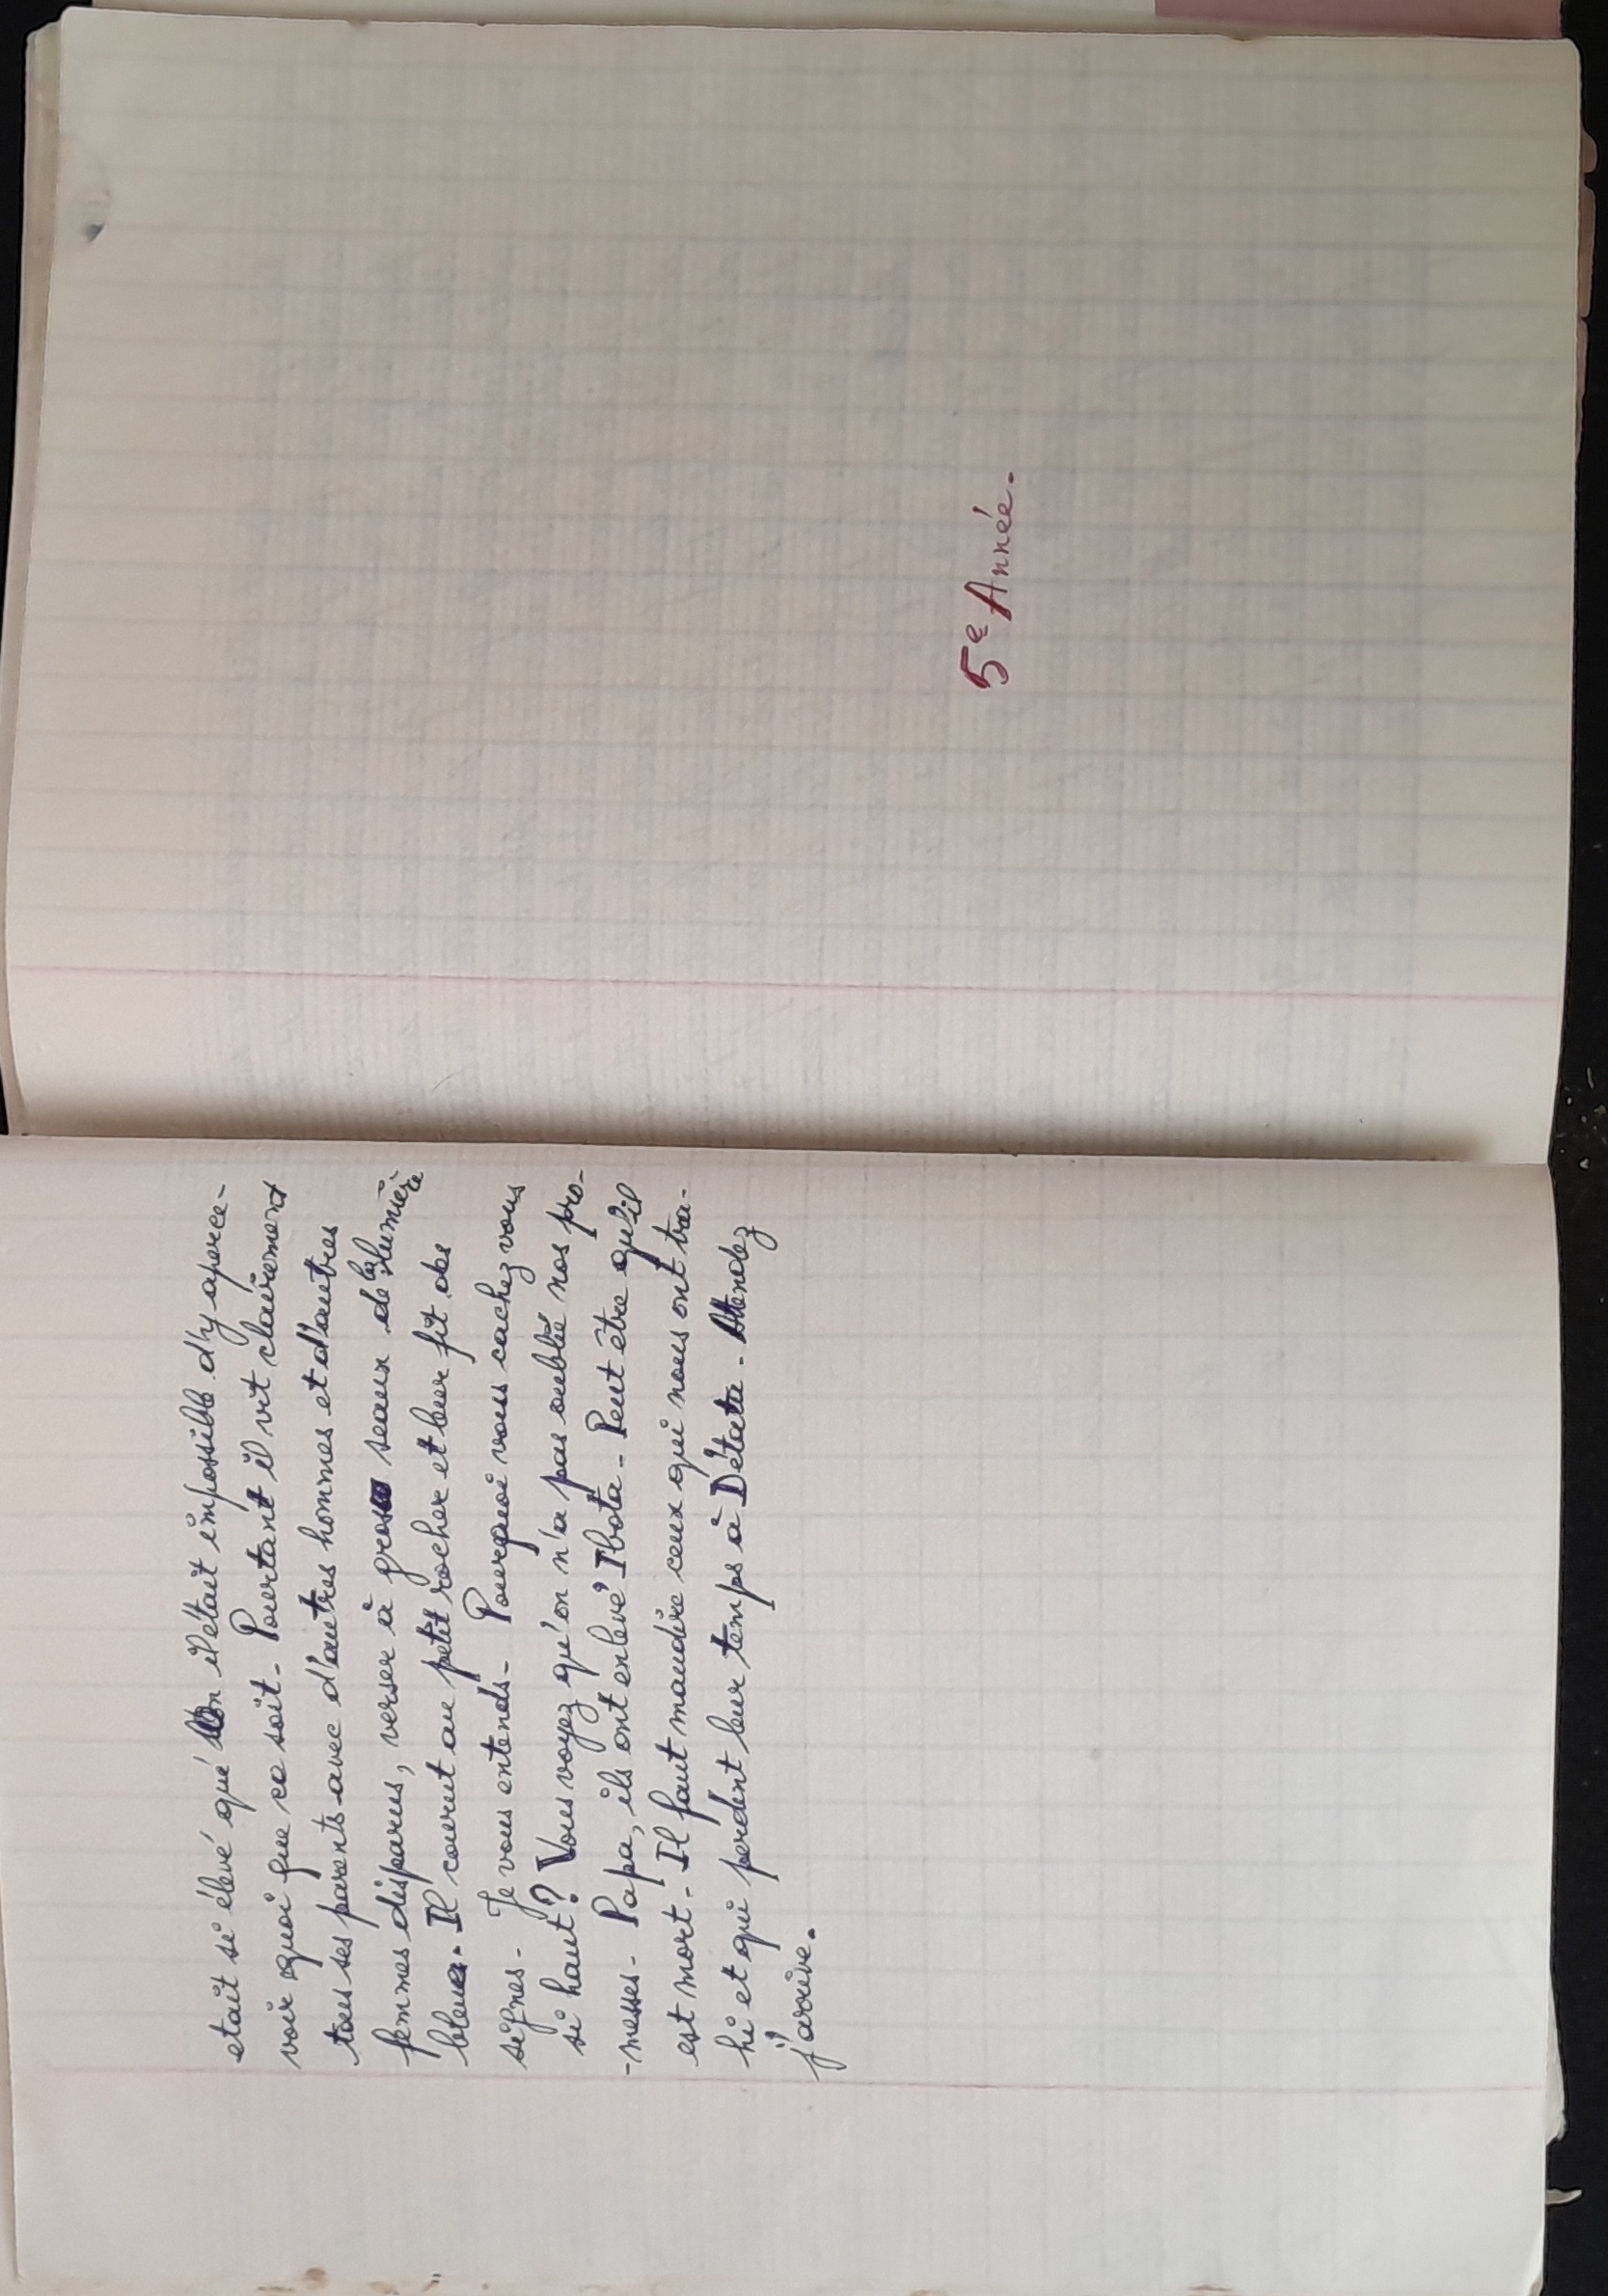 etait si élevé qué il était impossible d'y aperce-
voir quoi que ce soit. Pourtant il vit clairement
tous ses parents avec d'autres hommes et d'autres
femmes disparus, verser à gros seaux de la lumière
bleue. Il courut au petit rocher et leur fit des
signes - Je vous entends - Pourquoi vous cachez vous
si haut ? Vous voyez qu'on n'a pas oublié nos pro-
-messes - Papa, ils ont enlevé Ibota - Peut être qu'il
est mort - Il faut maudire ceux qui nous ont tra-
hi et qui perdent leur temps à Détata - Attendez
j'arrive.
5e Année.